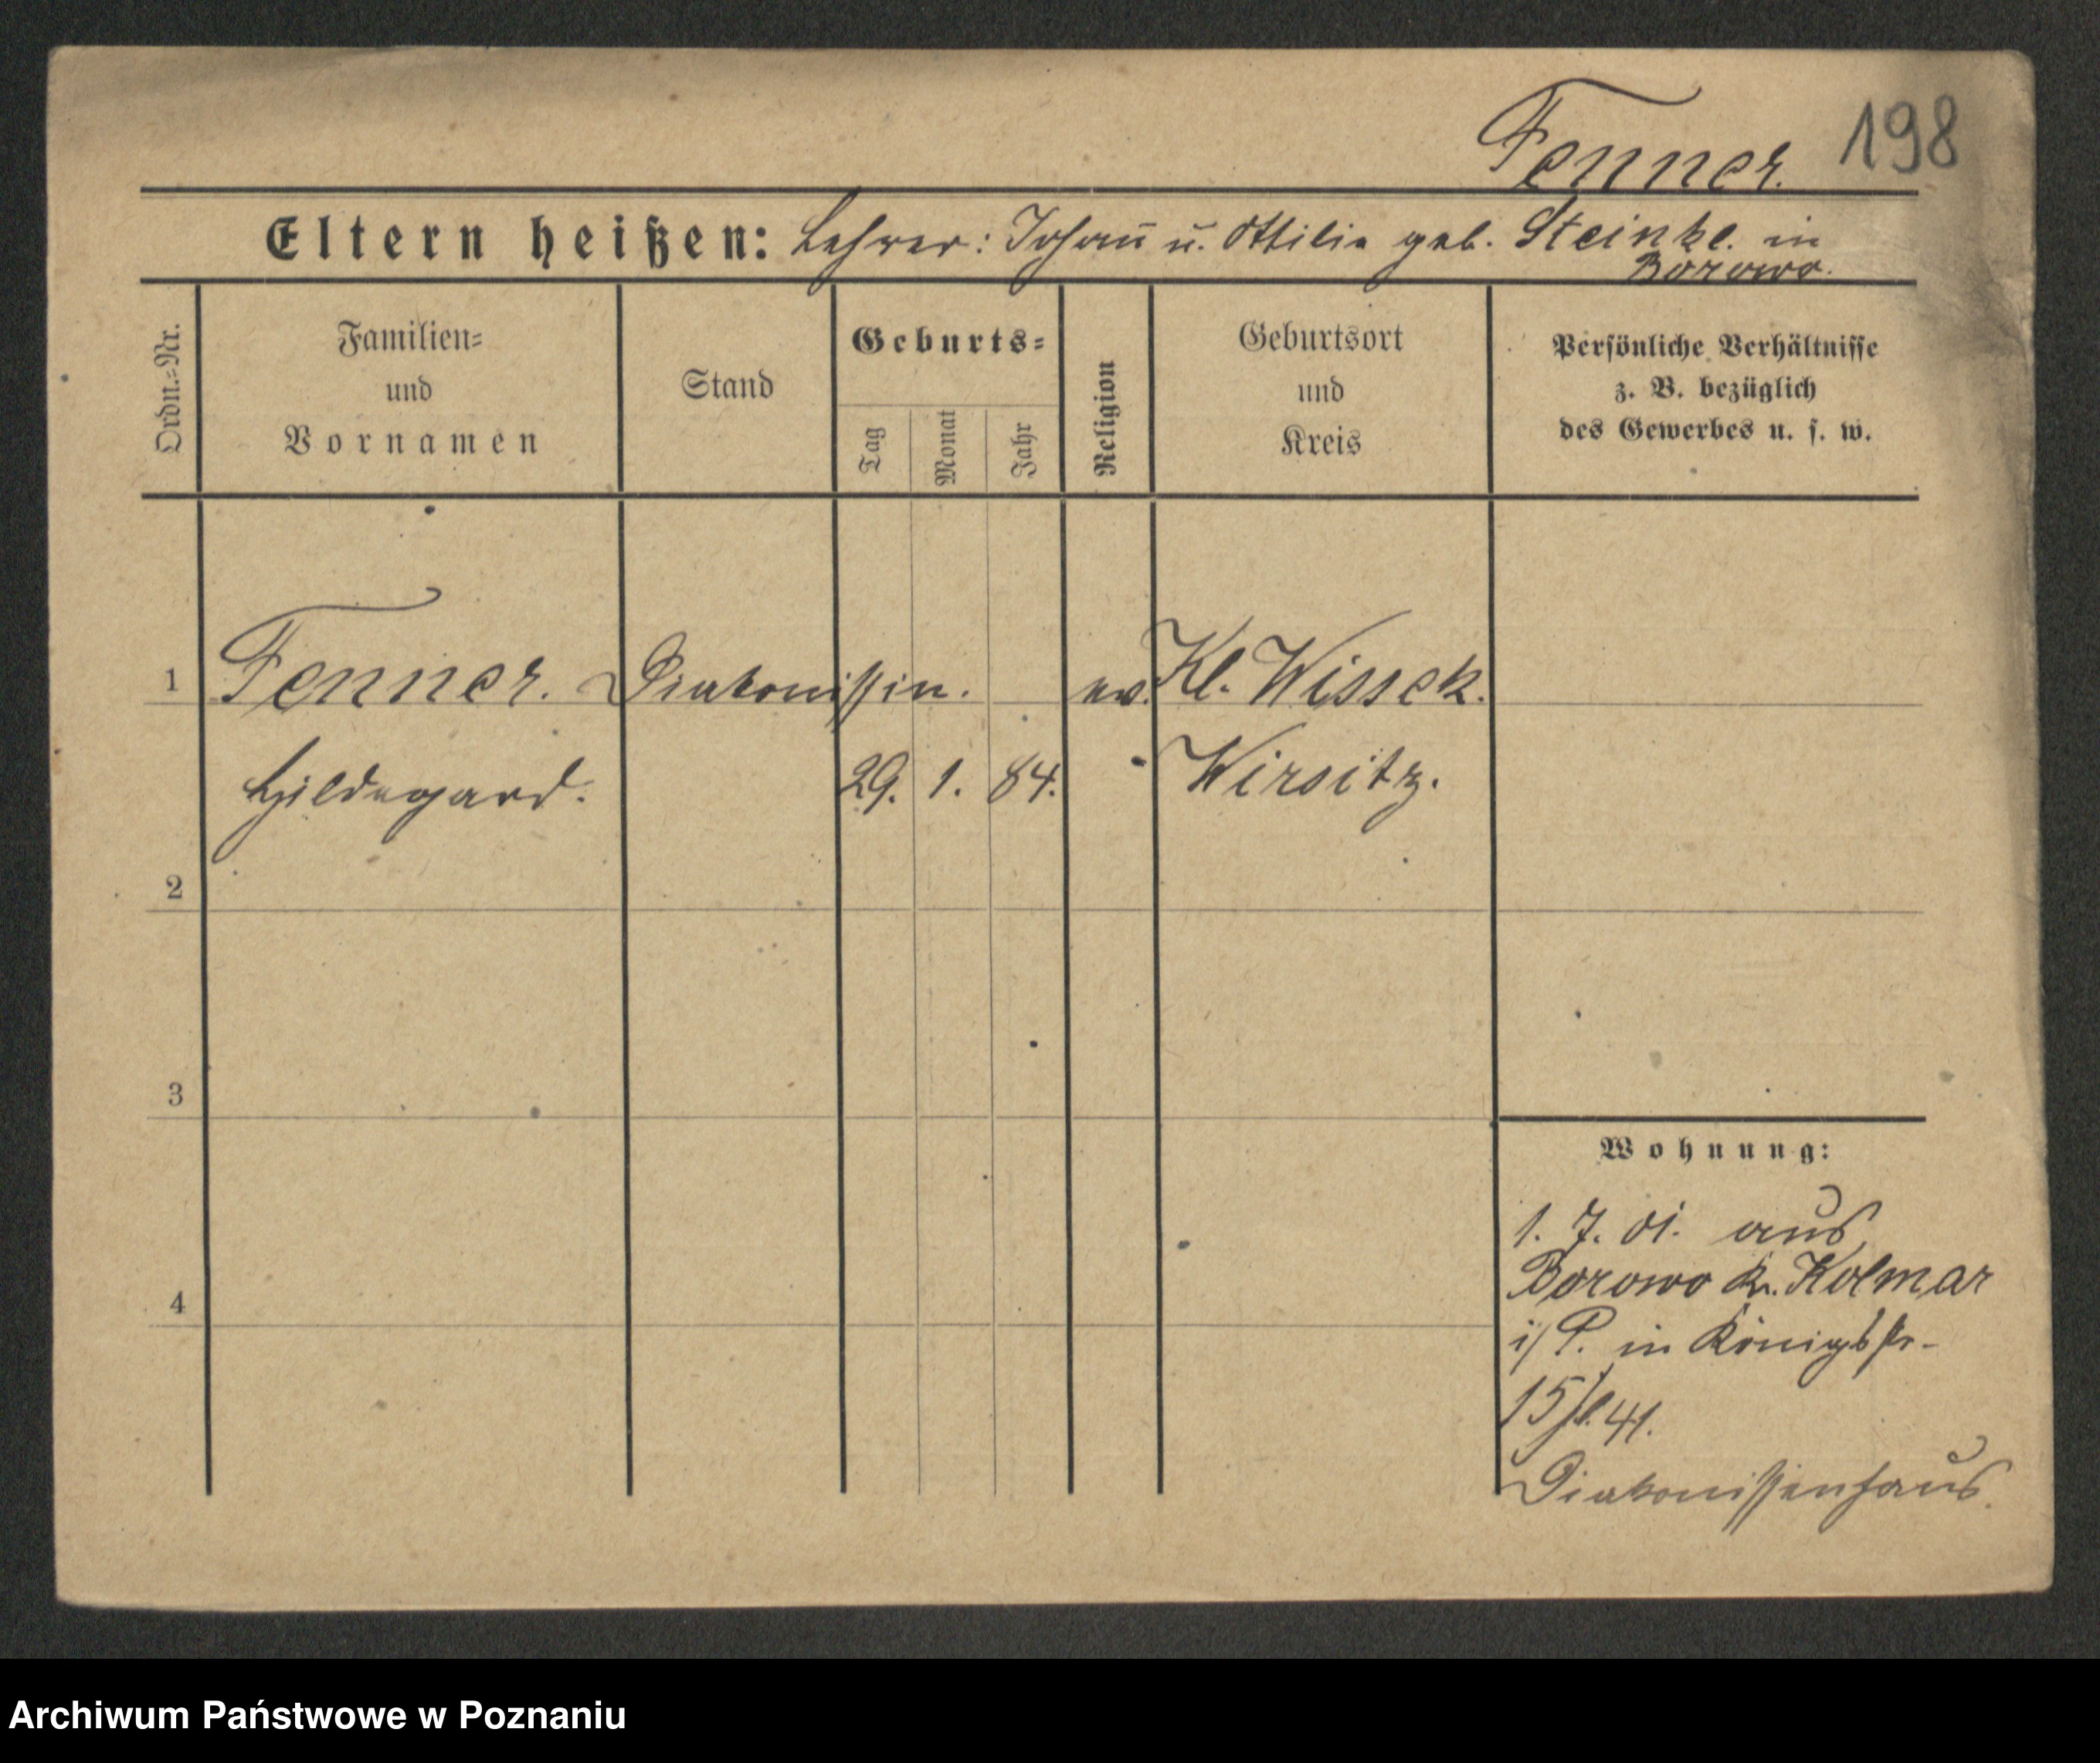 Fenner. 198
Eltern heißen: Lehrer: Johañ u. Ottilie geb. Steinke. in
Borowo.
Ordn.=Nr.
Familien=
und
Vornamen
Stand
Geburts=
Tag
Monat
Jahr
Religion
Geburtsort
und
Kreis
Persönliche Verhältnisse
z. B. bezüglich
des Gewerbes u. s. w.
1 Fenner. Diakonissin. ev. Kl. Wissek.
Hildegard. 29. 1. 84. Wirsitz.
2
3
4
Wohnung:
1. 7. 01. aus
Borowo Kr. Kolmar
i/P. in Königstr-
15/ 41.
Diakonissenhaus.
Archiwum Państwowe w Poznaniu